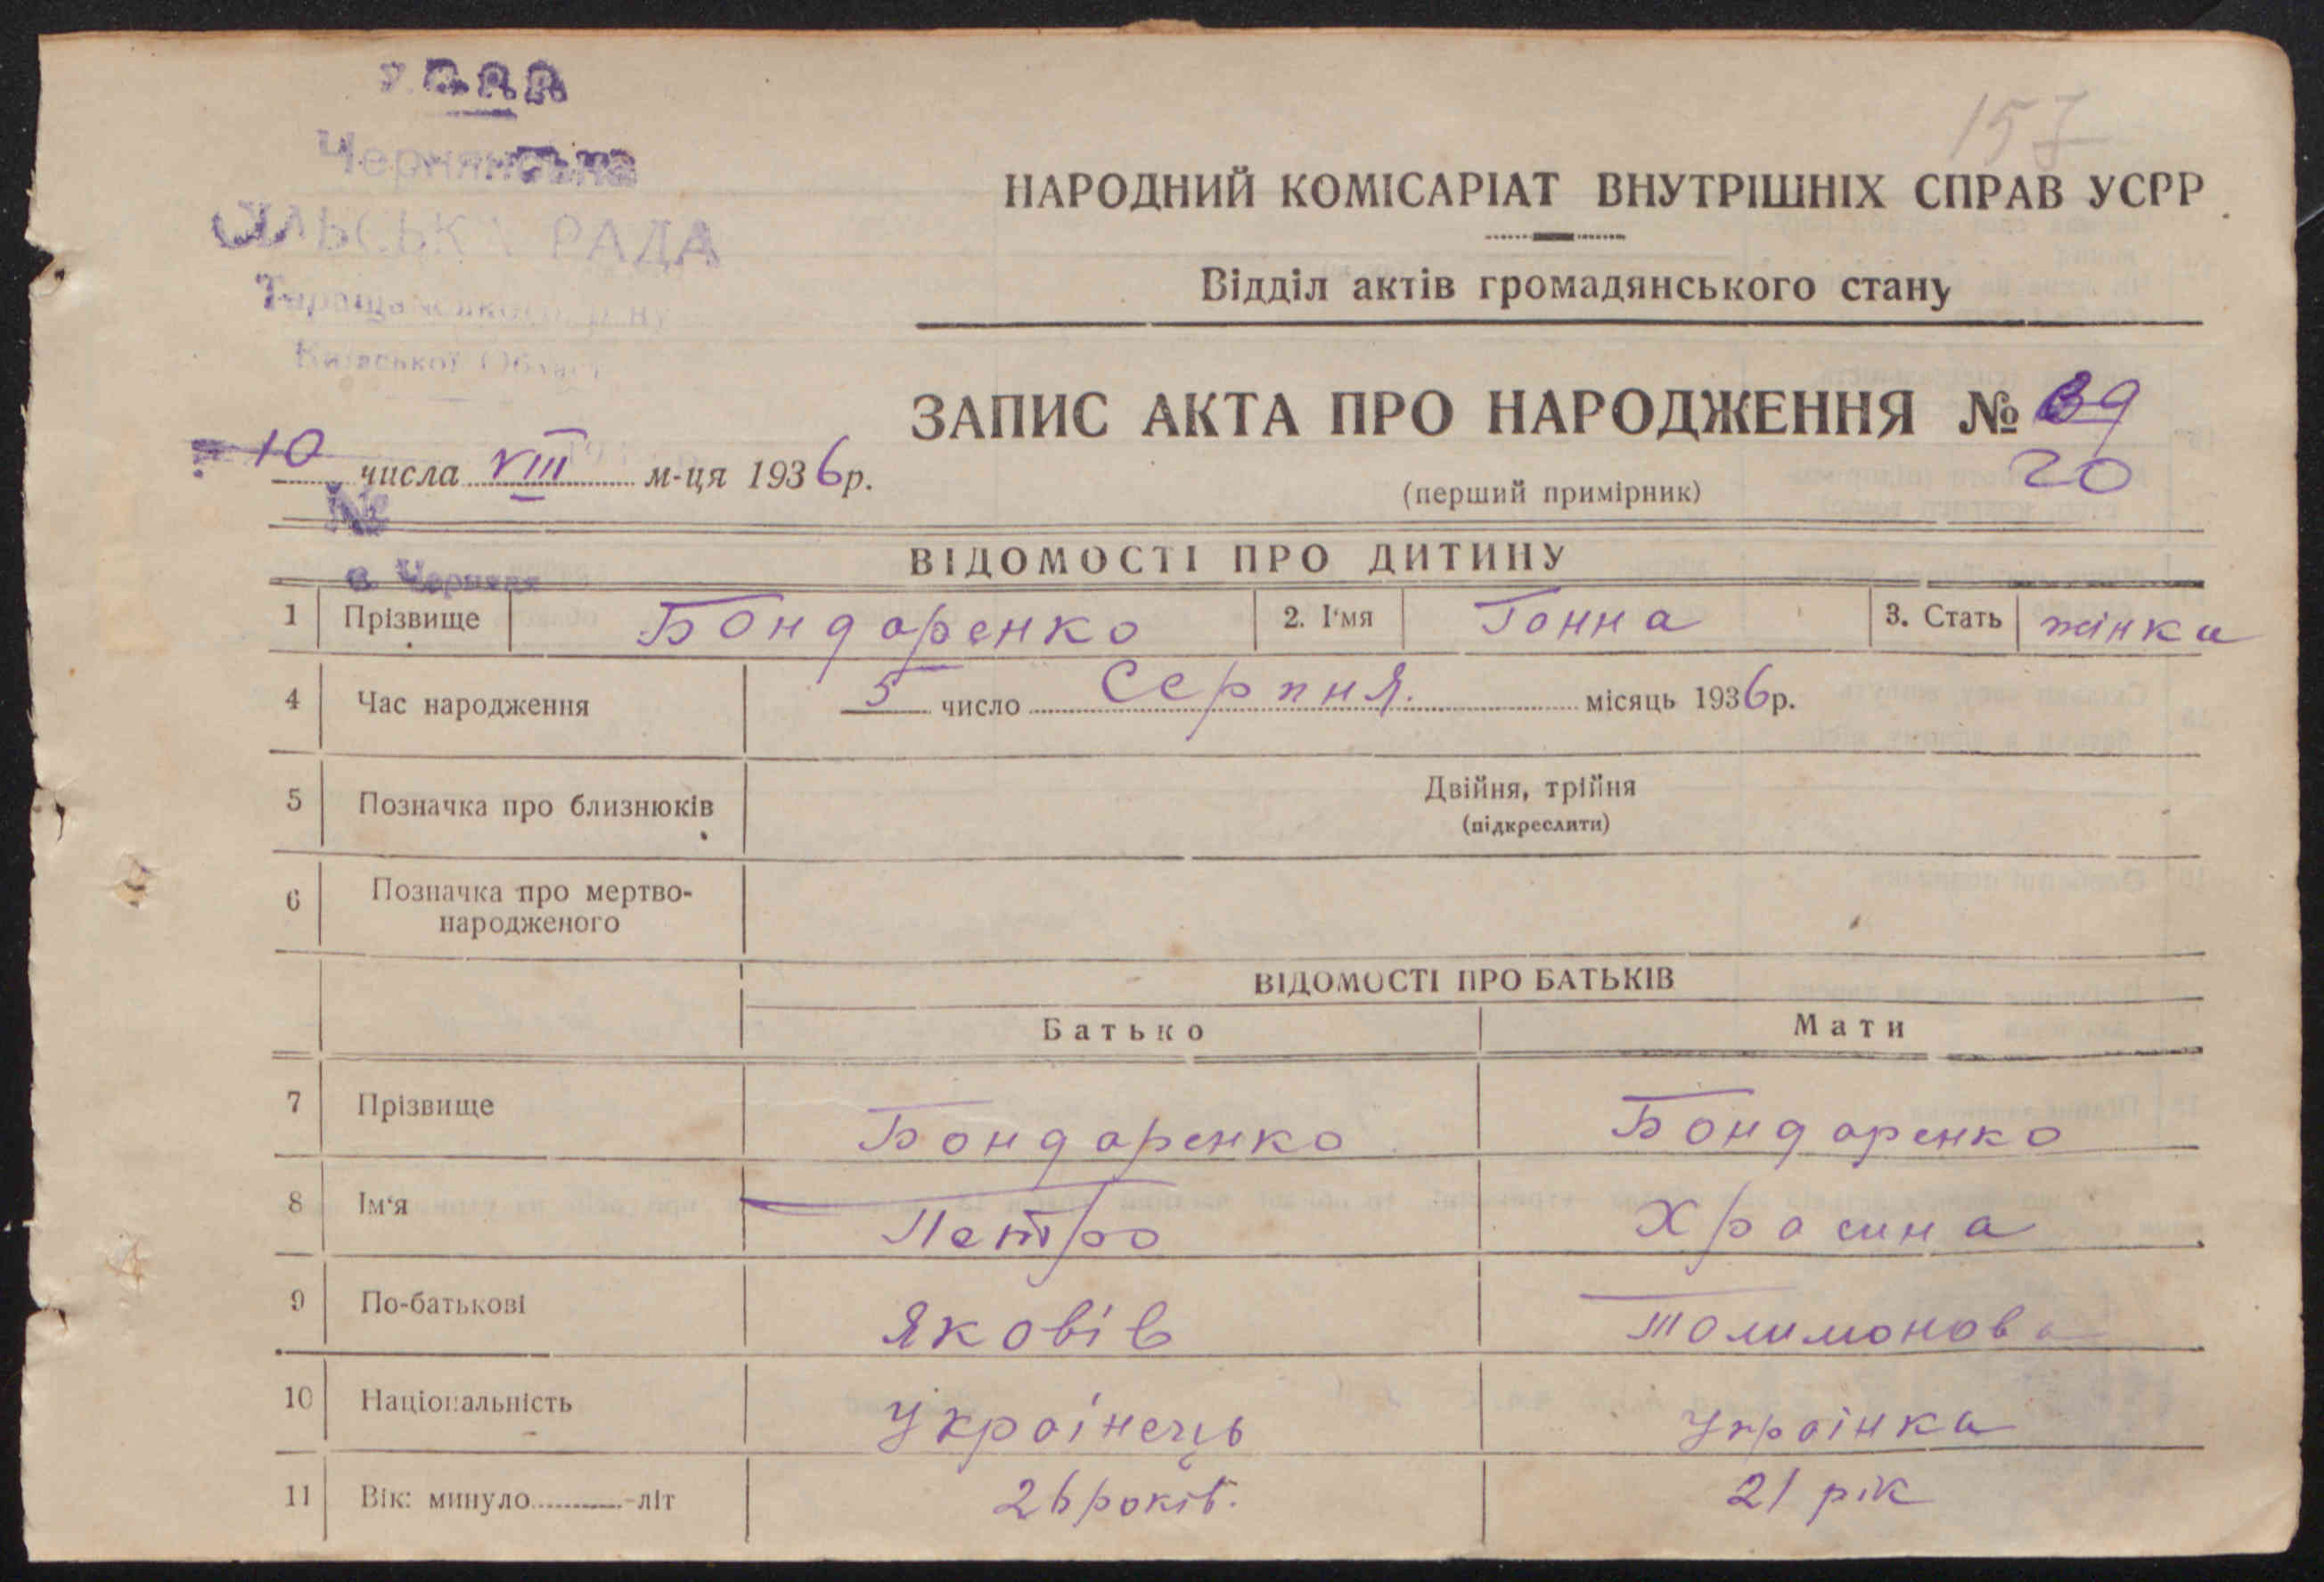 У.С.Р.Р.
157
Чернинська
СІЛЬСЬКА РАДА
Таращанського р-ну
Київської Област
НАРОДНИЙ КОМІСАРІАТ ВНУТРІШНІХ СПРАВ УСРР
Відділ актів громадянського стану
ЗАПИС АКТА ПРО НАРОДЖЕННЯ № 39
20
10 числа VIII м-ця 1936 р.
(перший примірник)
№
с. Чернин
ВІДОМОСТІ ПРО ДИТИНУ
1 Прізвище Бондаренко 2. І'мя Ганна 3. Стать жінка
4 Час народження 5 число Серпня. місяць 1936 р.
5 Позначка про близнюків Двійня, трійня
(підкреслити)
6 Позначка про мертво-
народженого
ВІДОМОСТІ ПРО БАТЬКІВ
Батько Мати
7 Прізвище Бондаренко Бондаренко
8 Ім'я Петро Храсина
9 По-батькові Яковів Толимонова
10 Національність Українець Українка
11 Вік: минуло -літ 26 років. 21 рік